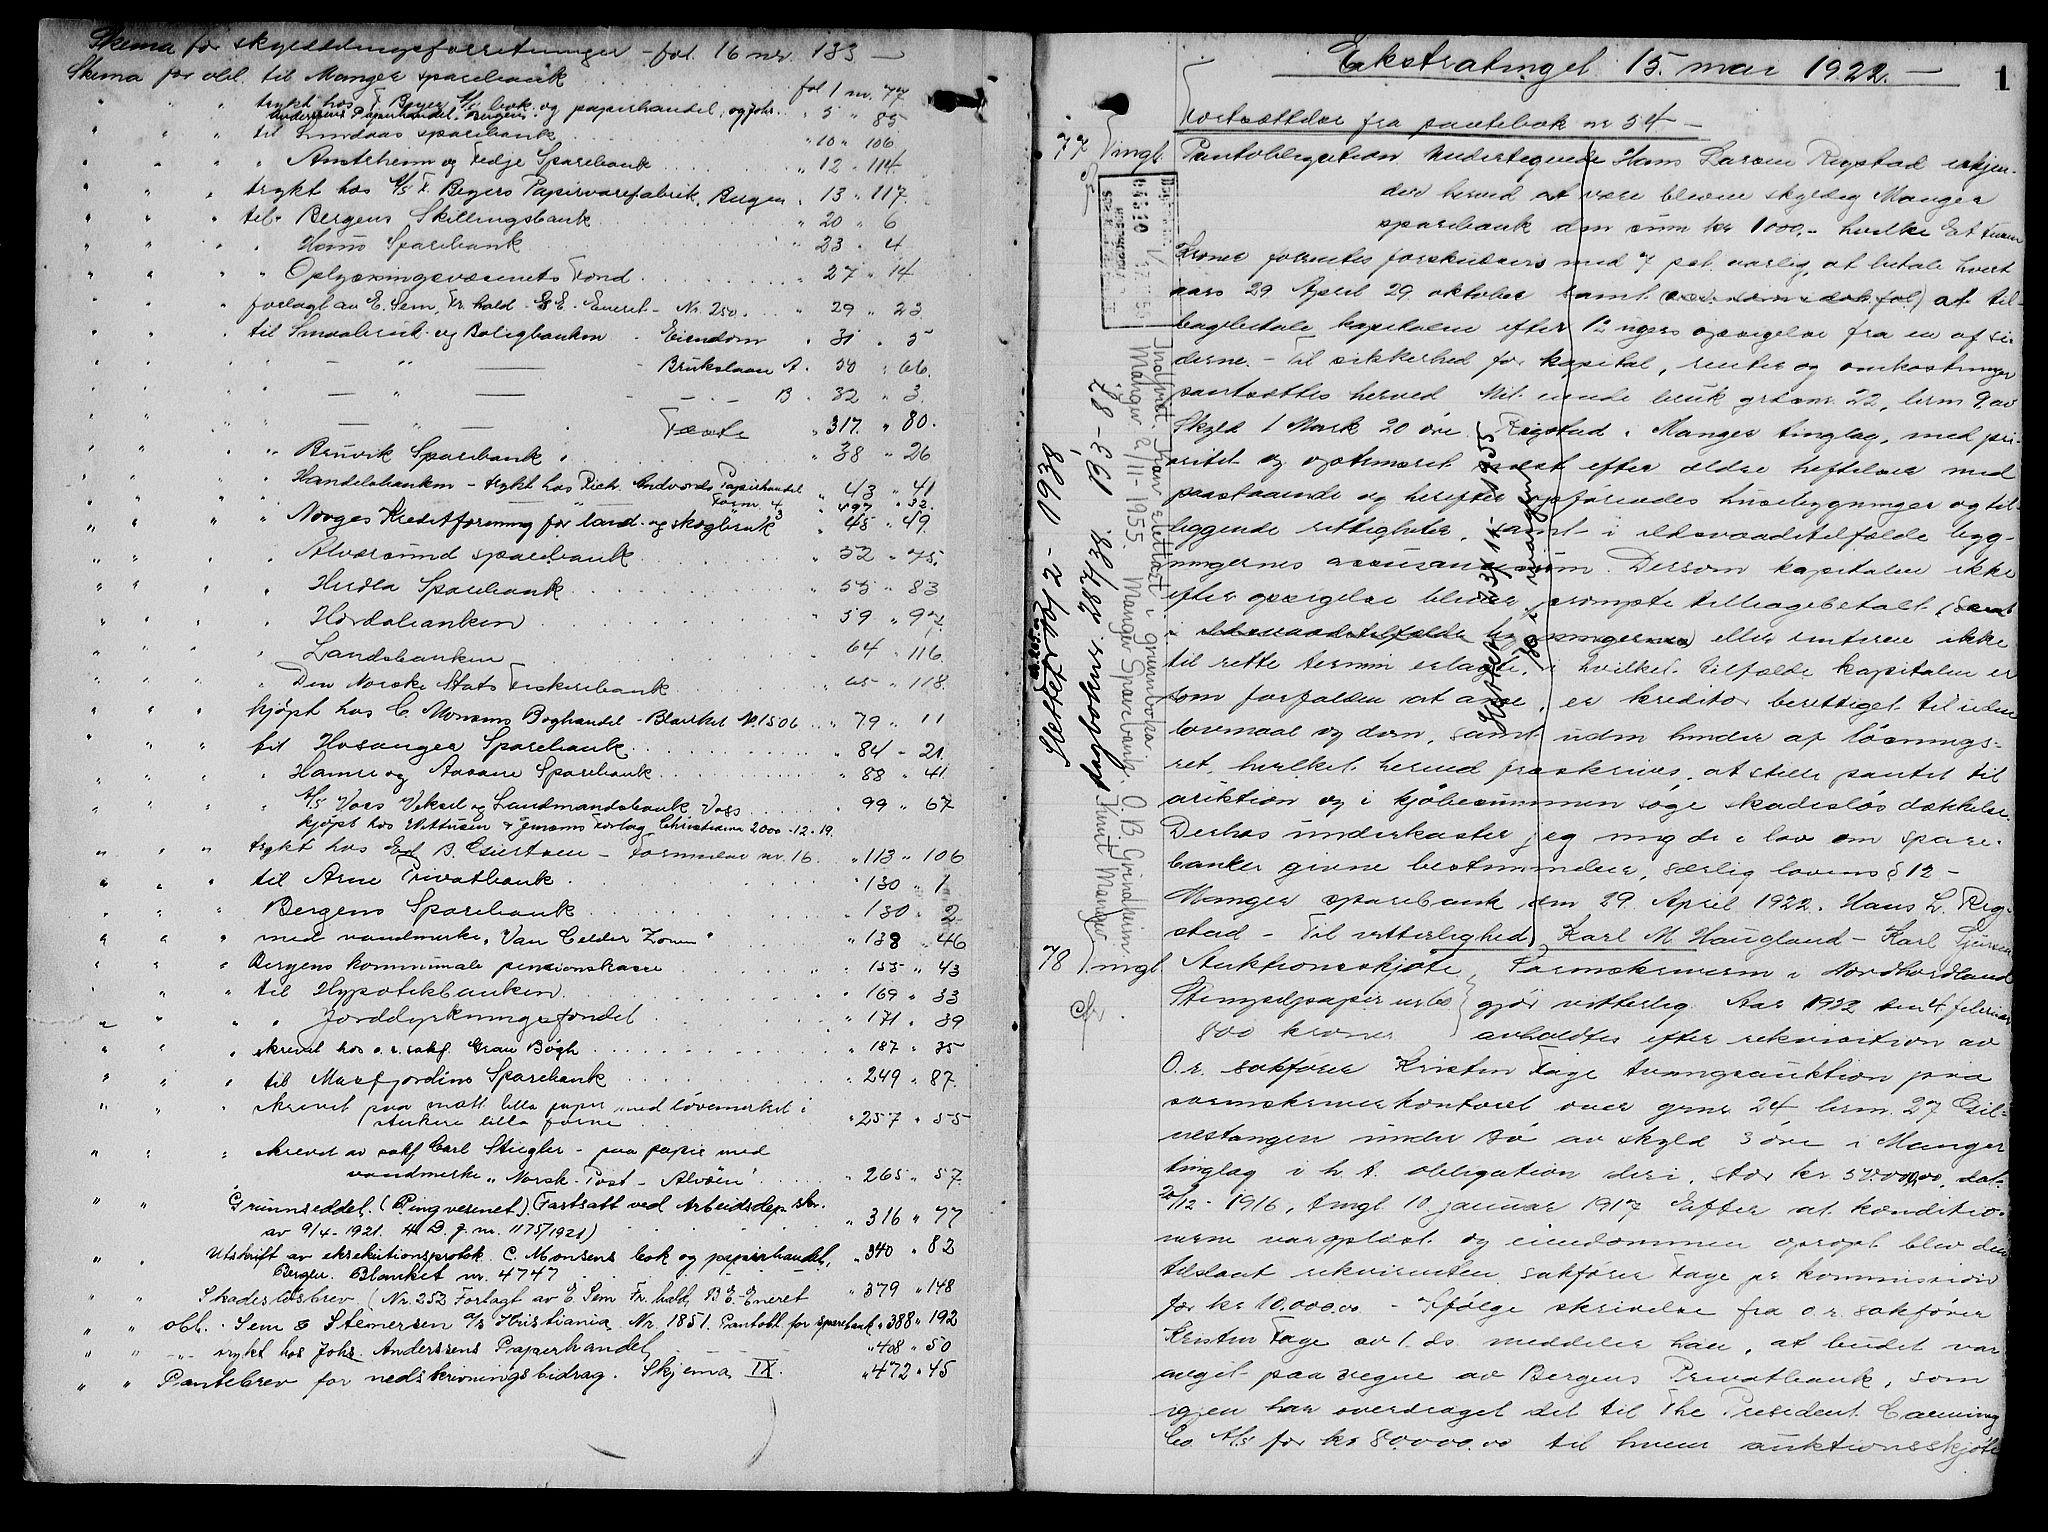 Skema for skylddelingsforretninger – fol. 16 nr. 133 —
Skema for obl. til Manger sparebank fol 1 nr. 77
" " " trykt hos F. Beyer A/S bok- og papirhandel, og Johs. " 5 " 85
Anderssens Papirhandel, Bergen
" " " til Lindaas sparebank " 10 " 106
" " " " Austrheim og Fedje Sparebank " 12 " 114
" " " trykt hos A/S F. Beyers Papirvarefabrik, Bergen " 13 " 117.
" " " til Bergens Skillingsbank " 20 " 6
" " " " Haus Sparebank " 23 " 4
" " " " Oplysningsvæsenets Fond " 27 " 14
" " " forlagt av E. Sem, Fr.hald - G E. Eneret - Nr. 250. " 29 " 23
" " " til Smaabruk- og Boligbanken - Eiendom " 31 " 5
" " " — " — - Brukslaan A. " 50 " 66.
" " " — " — - — " - B " 32 " 3.
" " " — " — Fæste " 317. " 80.
" " " " Bruvik Sparebank " 38 " 26
" " " " Handelsbanken - trykt hos Rich. Andvords Papirhandel " 43 " 41
Form. 4 " 497 " 32.
" " " " Norges Kreditforening for land- og skogbruk 3 " 45 " 49.
" " " " Alversund sparebank " 52 " 75.
" " " " Herdla Sparebank " 55 " 83
" " " " Hordabanken " 59 " 97.
" " " " Landsbanken " 64 " 116.
" " " " Den Norske Stats Fiskeribank " 65 " 118.
" " " kjøpt hos C. Monsens Boghandel - Blanket No 1506 " 79 " 11
" " " til Hosanger Sparebank " 84 - 21.
" " " " Hamre og Aasane Sparebank " 88 " 41
" " " " A/S Voss Veksel og Landmandsbank Voss " 99 " 67
kjøpt hos Wittusen & Jensens Forlag, Christiania 2000-12-19.
" " " trykt hos Ed B. Giertsen - Formular nr. 16. " 113 " 106
" " " til Arne Privatbank " 130 " 1
" " " Bergens Sparebank " 130 " 2
" " " med vandmerke "Van Gelder Zonen" " 138 " 46
" " " Bergens kommunale pensionskasse " 155 " 43
" " " til Hypotekbanken " 169 " 33
" " " " Jorddyrkningsfondet " 171 " 39
" " " skrevet hos o.r.sakf. Grau Bøgh " 187 " 35
" " " til Masfjordens Sparebank " 249 " 87.
" " " skrevet paa matt lilla papir med løvemerket i " 257 " 55
sterkere lilla farve
" " " skrevet av sakf Carl Stiegler - paa papir med
vandmerke "Norsk-Post-Alvøen" " 265 " 57.
" " Grunnseddel. (Pingvesenet) Fastsatt ved Arbeidsdep. skr.
av 9/4-1921. A D. j. nr. 1175/1921) " 316 " 77
" " Utskrift av eksekutionsprotok. C. Monsens bok og papirhandel, " 340 " 82
Bergen. Blanket nr. 4747
" " Skadesløsbrev (Nr. 252 Forlagt av E. Sem Fr.hald, B E.-Eneret " 379 " 148
" " obl. - Sem & Stenersen A/S Kristiania. Nr. 1851. Pantobl. for sparebank " 388 " 192
" " -"- trykt hos Johs. Anderssens Papirhandel " 408 " 50
" " Pantebrev for nedskrivningsbidrag. Skjema IX. " 472 " 45
Ekstratinget 15. mai 1922. — 1
Fortsættelse fra pantebok nr 34 —
77 Tingl. Pantobligation Undertegnede Hans Larsen Rygstad erkjen-
der herved at være bleven skyldig Manger
sparebank den sum kr 1000.- hvilke Et tusen
Kroner forrentes forskudsvis med 7 pct. aarlig, at betale hvert
aars 29 April 29 oktober samt at til-
bagebetale kapitalen efter 12 ugers opsigelse fra en af si-
derne. - Til sikkerhed for kapital, renter og omkostninger
pantsættes herved Mit eiende bruk grdsnr. 22, brnr 9. av
Skyld 1 Mark 20 øre Rygstad i Manger tinglag, med pri-
oritet og optrinsret næst efter ældre heftelser med
paastaaende og herefter opførendes husebygninger og til-
liggende rettigheter, samt i ildsvaadetilfælde byg-
ningernes assuransesum. Dersom kapitalen ikke
efter opsigelse bliver prompte tilbagebetalt (samt
i ildsvaadetilfælde bygningernes) eller renterne ikke
til rette termin erlagte, i hvilket tilfælde kapitalen er
som forfalden at anse, er kreditor berettiget til uden
lovmaal og dom, samt uden hinder af løsnings-
ret, hvilket herved fraskrives, at stille pantet til
auktion og i kjøbesummen søge skadesløs dækkelse.
Derhos underkaster jeg mig de i lov om spare-
banker givne bestemmelser, særlig lovens § 12 -
Manger sparebank den 29. April 1922. Hans L. Ryg-
stad - Til vitterlighed: Karl M Haugland - Karl
78 Tingl. Auktionsskjøte, Sorenskriveren i Nordhordland
Stempelpapir gjør vitterlig: Aar 1922 den 4 februar
800 kroner avholdtes efter rekvisition av
O.r. sakfører Kristen Fage tvangsauktion paa
sorenskriverkontoret over grnr 24 brnr. 27
nestangen under Bø av skyld 3 øre i Manger
tinglag i h.t. obligation deri, stor kr 50.000,00, dat.
20/12 - 1916, tingl. 10. januar 1917. Efter at konditio-
nerne var oplæst og eiendommen opropt blev den
tilslaat rekvirenten sakfører Fage pr kommission
for kr 10.000.00 - Ifølge skrivelse fra o.r. sakfører
Kristen Fage av 1. ds. meddeler han, at budet var
avgit paa vegne av Bergens Privatbank, som
igjen har overdraget det til The President Canning
Co. A/S for kr 80.000.00 til hvem auktionsskjøte
Slettet 2 - 1938
dagboknr. 2874/38 19/3 - 38
Indfriet. Kan slettast i grunnboka.
Manger 2/11-1955. Manger Sparebank. O. B Grindheim
Knut Manger
Slettet 23/11 1955
se i margen